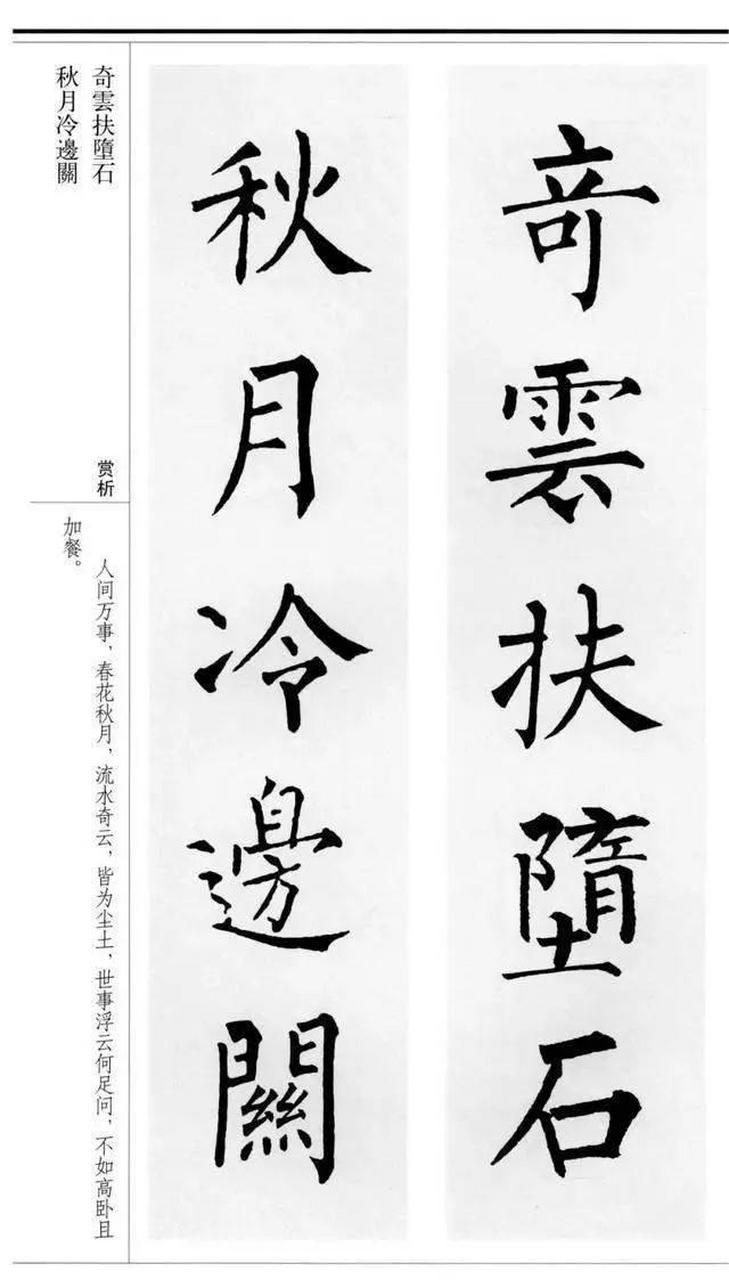 奇雲扶墮石
秋月冷邊關
奇雲扶墮石
秋月冷邊關
赏析
人间万事，春花秋月，流水奇云，皆为尘土，世事浮云何足问，不如高卧且
加餐。